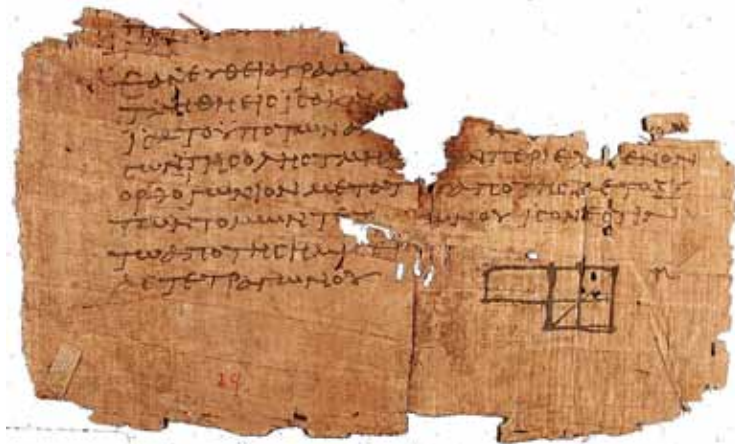 ΕΑΝ ΕΥΘΕΙΑ ΓΡΑΜΜ
ΤΜΗΘΗ ΕΙϹ ΙϹΑ Κ
ΙϹΑ ΤΟ ΥΠΟ ΤΩΝ
ΤΩΝ ΤΗϹ ΟΛΗϹ ΤΜΗΜ ΩΝ ΠΕΡΙΕΧΟΜΕΝΟΝ
ΟΡΘΟΓΩΝΙΟΝ ΜΕΤΑ ΤΟΥ ΑΠΟ ΤΗϹ ΜΕΤΟΞΥ
ΤΩΝ ΤΟΜΩΝ ΤΕ ΩΝΟΥ ΙϹΟΝ ΕϹΤΙΝ
ΤΩ ΑΠΟ ΤΗϹ ΗΜΙϹΕΙ
ΑϹ ΤΕΤΡΑΓΩΝΟΥ
29